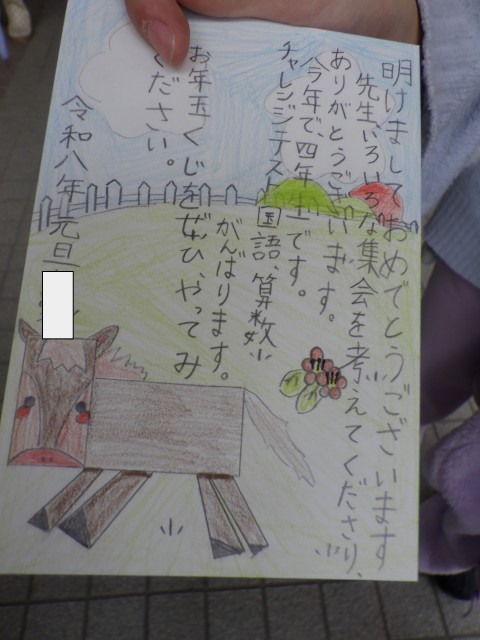 明けましておめでとうございます
先生、いろいろな集会を考えてくださり、
ありがとうございます。
今年で、四年生です。
チャレンジテスト国語、算数、
がんばります。
お年玉くじをぜひ、やってみ
ください。
令和八年元旦